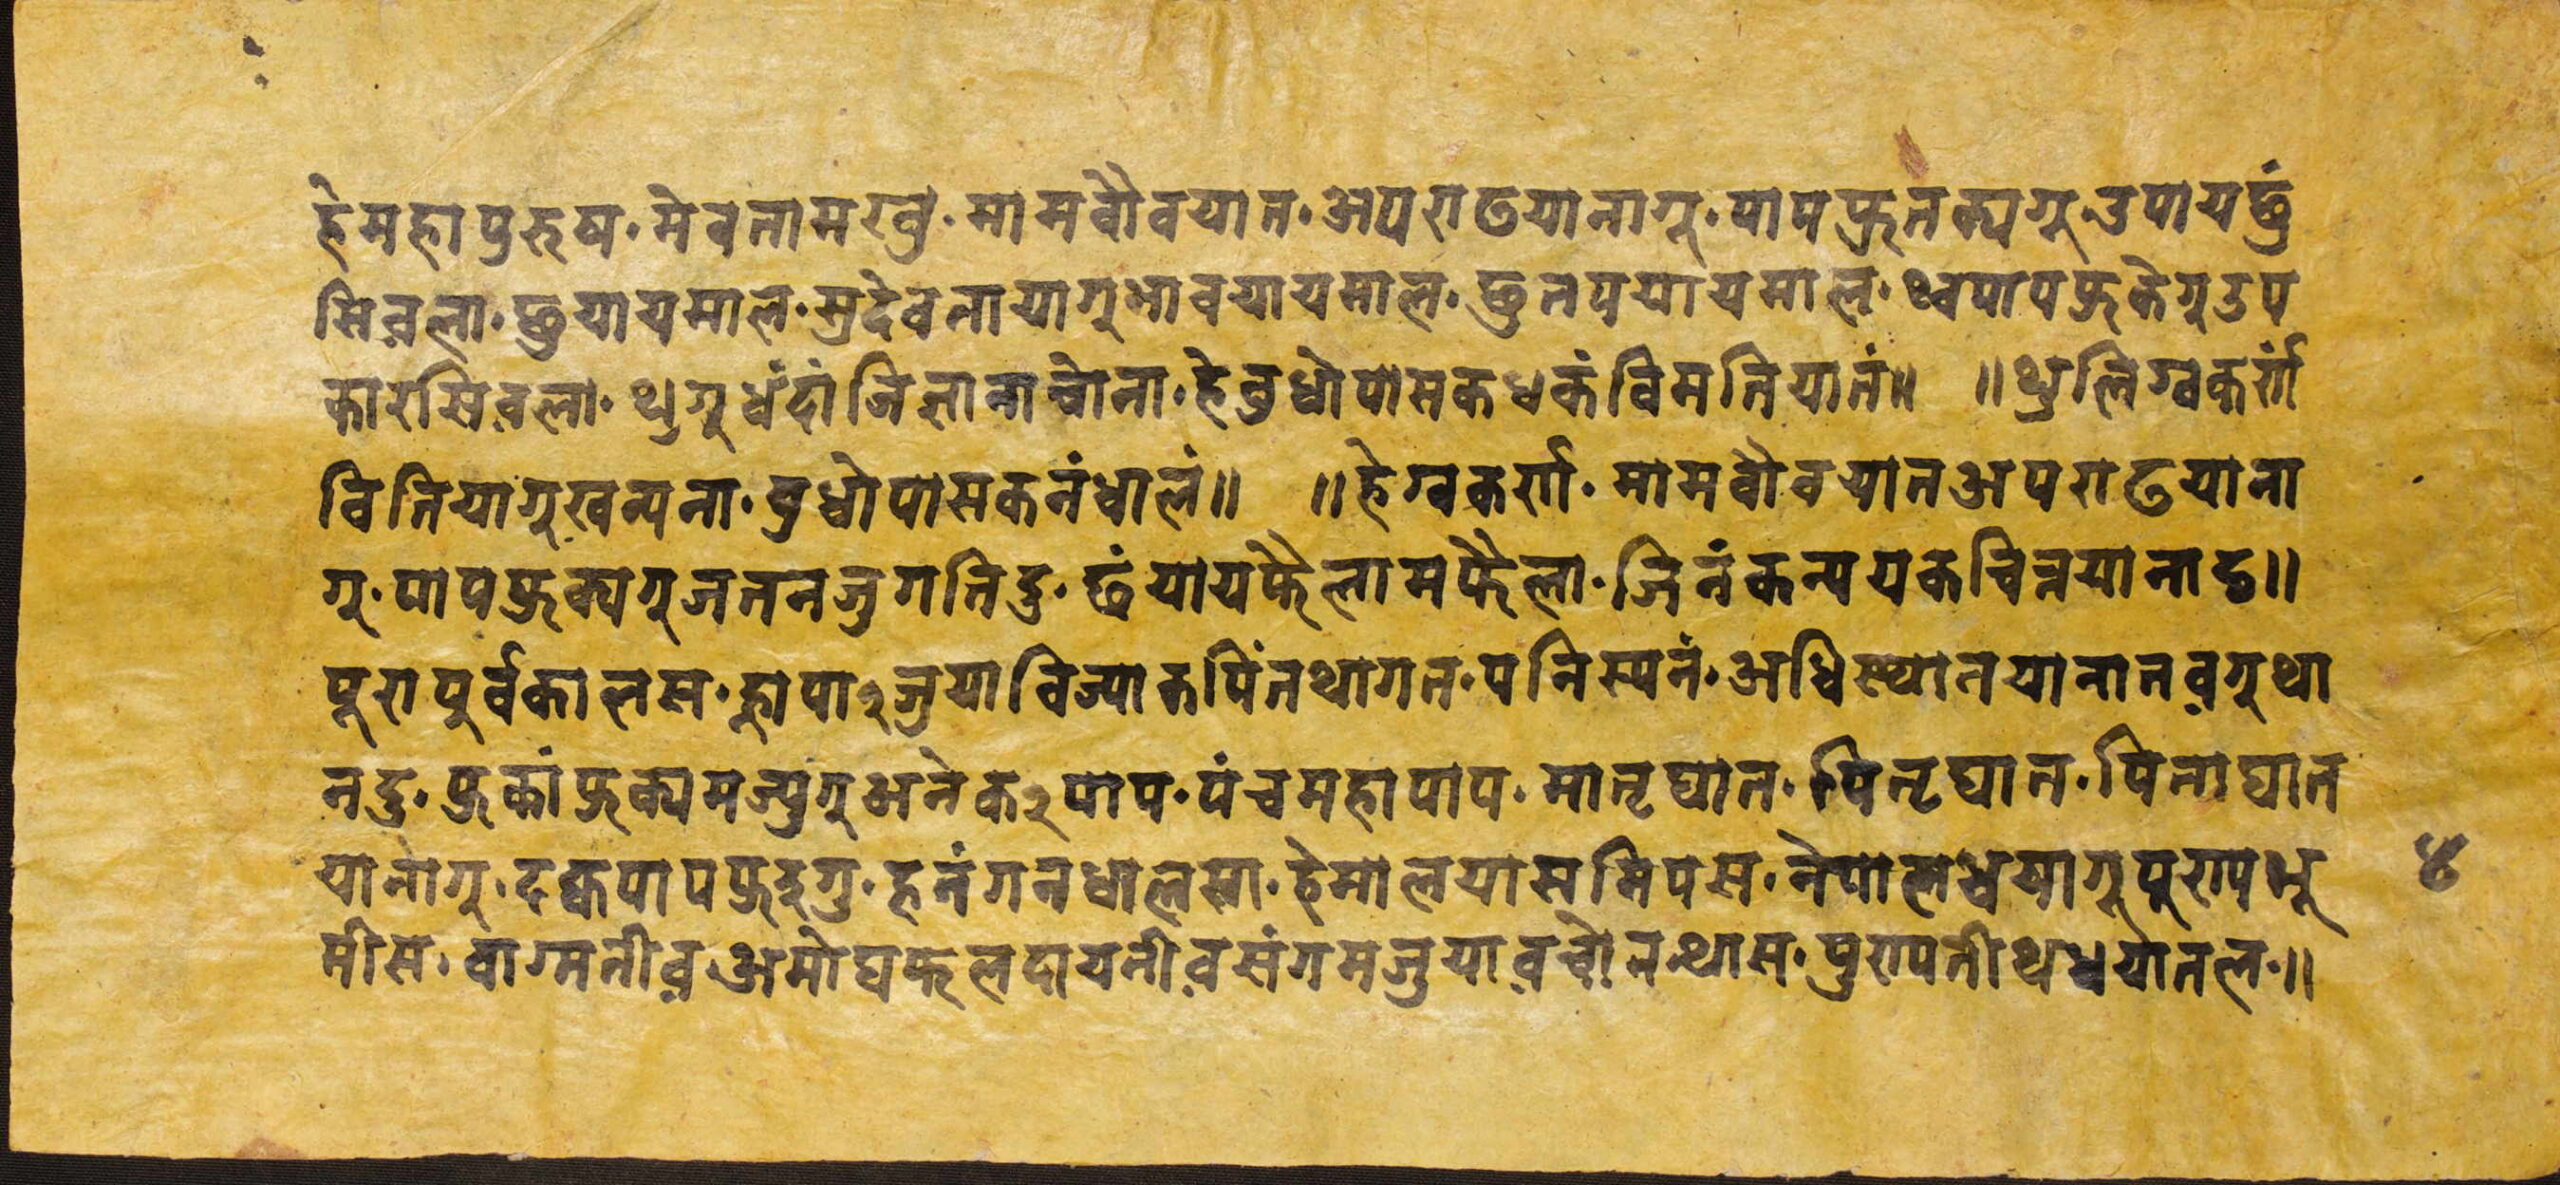 हेमहापुरुष॰मेवनामखु॰मामवौवयात॰अपराढयानागू॰पापफुतक्यगू॰उपायछुं
सिव़ला॰छुयायमाल॰सुदेवतायागुभावयायमाल॰छुतपयायमाल॰थ्वपापफुकेगुउप
कारसिव़ला॰थुगूधंदांजिनानाच्वोना॰हेवुधोपासकधकंविमतियातं॥ ॥थुलिग्वकर्रां
वितियागुखन्यना॰वुधोपासकनंधालं॥ ॥हेग्वकर्रा॰मामवौवयातअपराढयाना
गू॰पापफुक्यगूजतनजुगतिदु॰छंयायफैलामफैला॰जिनंकन्ययकचित्तयानाढ॥
पूरापुर्वकालस॰ह्रापा२जुयाविज्याकपिंतथागत॰पनिस्यनं॰अधिस्थानयानातव़गूथा
नदु॰फुकां फुक्यमज्युगूअनेक२पाप॰पंचमहापाप॰मातृघात॰पितृघात॰पिताघात
यानागू॰दक्वपापफुइगु॰हनंगनधालसा॰हेमालयासमिपस॰नेपालधयागूपूरापभू
मीस॰वाग्मतीव़अमोघफलदायनीव़संगमजुयाव़चोनथास॰पुरापतीथधयातल॰॥
४